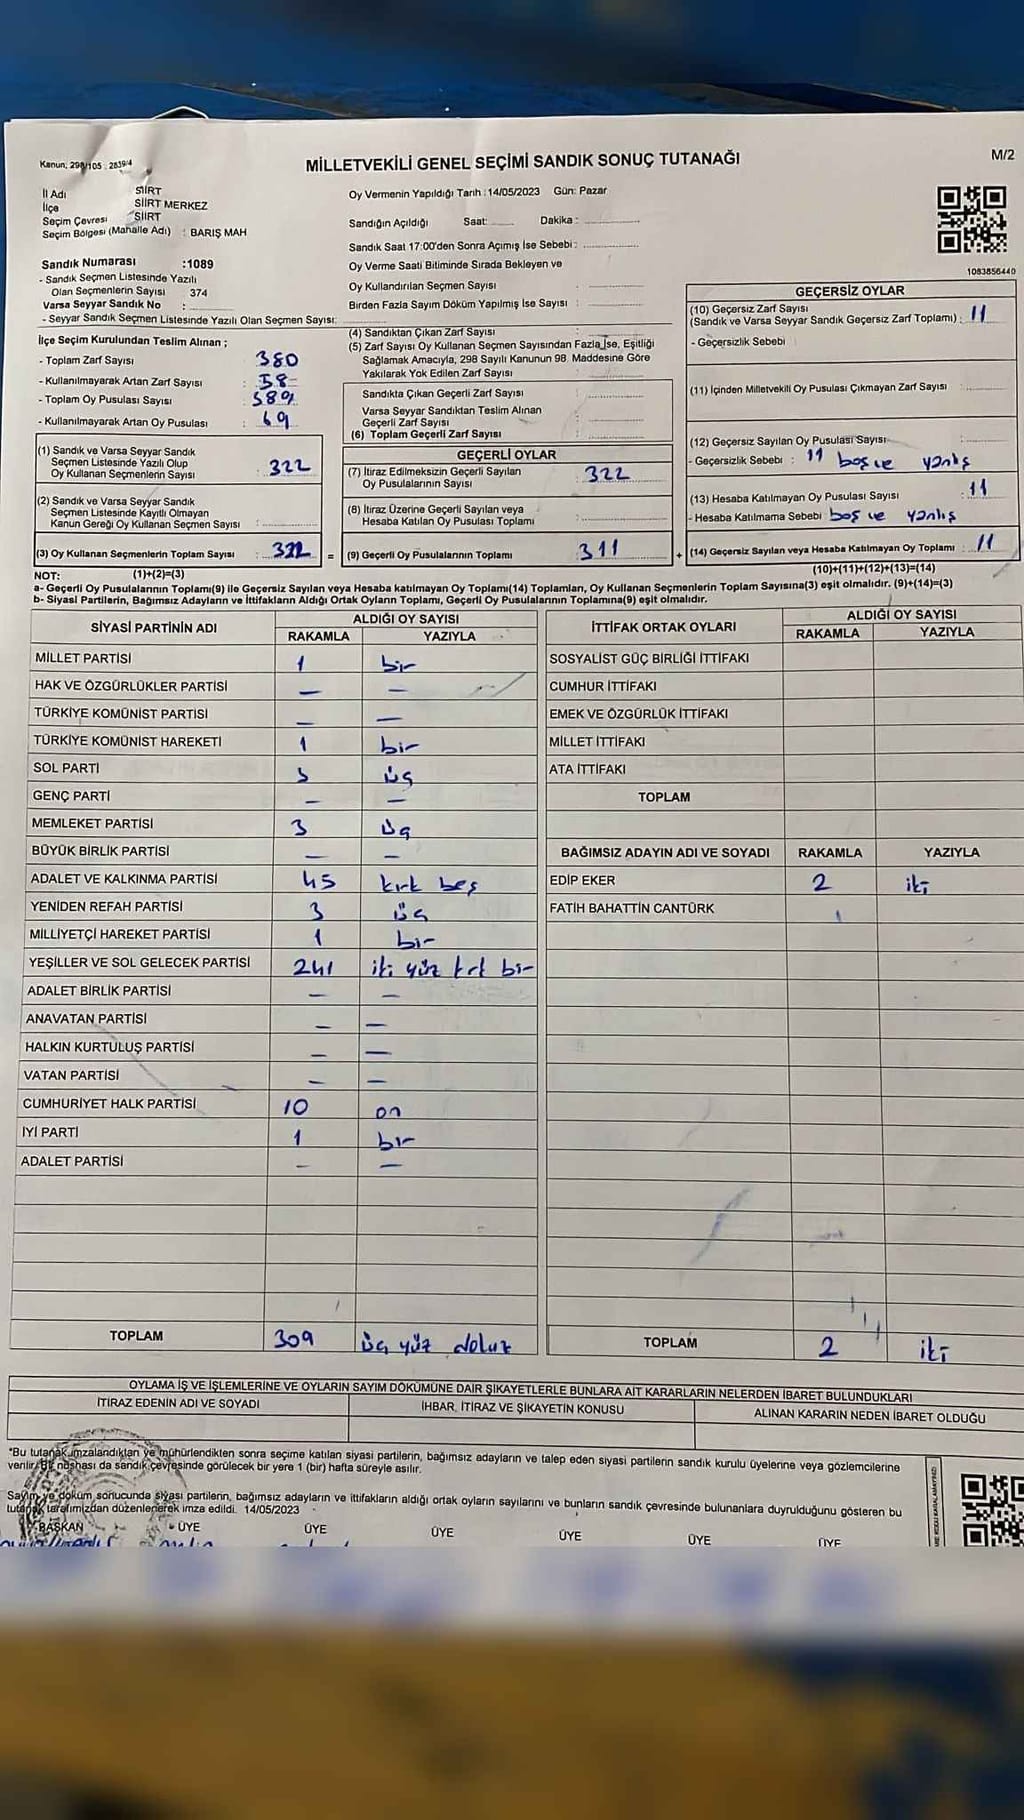 Kanun; 298/105 : 2839/4
MİLLETVEKİLİ GENEL SEÇİMİ SANDIK SONUÇ TUTANAĞI
M/2
İl Adı SİİRT
İlçe SİİRT MERKEZ
Seçim Çevresi SİİRT
Seçim Bölgesi (Mahalle Adı) : BARIŞ MAH
Oy Vermenin Yapıldığı Tarih : 14/05/2023 Gün: Pazar
Sandığın Açıldığı Saat: Dakika :
Sandık Saat 17:00'den Sonra Açımış İse Sebebi :
Oy Verme Saati Bitiminde Sırada Bekleyen ve
Oy Kullandırılan Seçmen Sayısı :
Birden Fazla Sayım Döküm Yapılmış İse Sayısı :
1083856440
Sandık Numarası :1089
- Sandık Seçmen Listesinde Yazılı
Olan Seçmenlerin Sayısı 374
Varsa Seyyar Sandık No :
- Seyyar Sandık Seçmen Listesinde Yazılı Olan Seçmen Sayısı:
İlçe Seçim Kurulundan Teslim Alınan ;
- Toplam Zarf Sayısı : 380
- Kullanılmayarak Artan Zarf Sayısı : 58
- Toplam Oy Pusulası Sayısı :
- Kullanılmayarak Artan Oy Pusulası : 69
(1) Sandık ve Varsa Seyyar Sandık
Seçmen Listesinde Yazılı Olup
Oy Kullanan Seçmenlerin Sayısı : 322
(2) Sandık ve Varsa Seyyar Sandık
Seçmen Listesinde Kayıtlı Olmayan
Kanun Gereği Oy Kullanan Seçmen Sayısı :
(3) Oy Kullanan Seçmenlerin Toplam Sayısı : 322 =
(4) Sandıktan Çıkan Zarf Sayısı :
(5) Zarf Sayısı Oy Kullanan Seçmen Sayısından Fazla İse, Eşitliği
Sağlamak Amacıyla, 298 Sayılı Kanunun 98. Maddesine Göre
Yakılarak Yok Edilen Zarf Sayısı :
Sandıkta Çıkan Geçerli Zarf Sayısı :
Varsa Seyyar Sandıktan Teslim Alınan
Geçerli Zarf Sayısı :
(6) Toplam Geçerli Zarf Sayısı :
GEÇERLİ OYLAR
(7) İtiraz Edilmeksizin Geçerli Sayılan
Oy Pusulalarının Sayısı : 322
(8) İtiraz Üzerine Geçerli Sayılan veya
Hesaba Katılan Oy Pusulası Toplamı :
(9) Geçerli Oy Pusulalarının Toplamı : 311 +
GEÇERSİZ OYLAR
(10) Geçersiz Zarf Sayısı
(Sandık ve Varsa Seyyar Sandık Geçersiz Zarf Toplamı) : 11
- Geçersizlik Sebebi
(11) İçinden Milletvekili Oy Pusulası Çıkmayan Zarf Sayısı :
(12) Geçersiz Sayılan Oy Pusulası Sayısı :
- Geçersizlik Sebebi : 11 boş ve yanlış
(13) Hesaba Katılmayan Oy Pusulası Sayısı : 11
- Hesaba Katılmama Sebebi boş ve yanlış
(14) Geçersiz Sayılan veya Hesaba Katılmayan Oy Toplamı : 11
NOT: (1)+(2)=(3) (10)+(11)+(12)+(13)=(14)
a- Geçerli Oy Pusulalarının Toplamı(9) ile Geçersiz Sayılan veya Hesaba katılmayan Oy Toplamı(14) Toplamları, Oy Kullanan Seçmenlerin Toplam Sayısına(3) eşit olmalıdır. (9)+(14)=(3)
b- Siyasi Partilerin, Bağımsız Adayların ve İttifakların Aldığı Ortak Oyların Toplamı, Geçerli Oy Pusulalarının Toplamına(9) eşit olmalıdır.
SİYASİ PARTİNİN ADI ALDIĞI OY SAYISI
RAKAMLA YAZIYLA
MİLLET PARTİSİ 1 bir
HAK VE ÖZGÜRLÜKLER PARTİSİ — —
TÜRKİYE KOMÜNİST PARTİSİ — —
TÜRKİYE KOMÜNİST HAREKETİ 1 bir
SOL PARTİ 3 üç
GENÇ PARTİ — —
MEMLEKET PARTİSİ 3 üç
BÜYÜK BİRLİK PARTİSİ — —
ADALET VE KALKINMA PARTİSİ 45 kırk beş
YENİDEN REFAH PARTİSİ 3 üç
MİLLİYETÇİ HAREKET PARTİSİ 1 bir
YEŞİLLER VE SOL GELECEK PARTİSİ 241 iki yüz kırk bir
ADALET BİRLİK PARTİSİ — —
ANAVATAN PARTİSİ — —
HALKIN KURTULUŞ PARTİSİ — —
VATAN PARTİSİ — —
CUMHURİYET HALK PARTİSİ 10 on
İYİ PARTİ 1 bir
ADALET PARTİSİ — —
TOPLAM 309 üç yüz dokuz
İTTİFAK ORTAK OYLARI ALDIĞI OY SAYISI
RAKAMLA YAZIYLA
SOSYALİST GÜÇ BİRLİĞİ İTTİFAKI
CUMHUR İTTİFAKI
EMEK VE ÖZGÜRLÜK İTTİFAKI
MİLLET İTTİFAKI
ATA İTTİFAKI
TOPLAM
BAĞIMSIZ ADAYIN ADI VE SOYADI RAKAMLA YAZIYLA
EDİP EKER 2 iki
FATİH BAHATTİN CANTÜRK
TOPLAM 2 iki
OYLAMA İŞ VE İŞLEMLERİNE VE OYLARIN SAYIM DÖKÜMÜNE DAİR ŞİKAYETLERLE BUNLARA AİT KARARLARIN NELERDEN İBARET BULUNDUKLARI
İTİRAZ EDENİN ADI VE SOYADI İHBAR, İTİRAZ VE ŞİKAYETİN KONUSU ALINAN KARARIN NEDEN İBARET OLDUĞU
*Bu tutanak imzalandıktan ve mühürlendikten sonra seçime katılan siyasi partilerin, bağımsız adayların ve talep eden siyasi partilerin sandık kurulu üyelerine veya gözlemcilerine
verilir. Bir nüshası da sandık çevresinde görülecek bir yere 1 (bir) hafta süreyle asılır.
Sayım ve döküm sonucunda siyasi partilerin, bağımsız adayların ve ittifakların aldığı ortak oyların sayılarını ve bunların sandık çevresinde bulunanlara duyrulduğunu gösteren bu
tutanak tarafımızdan düzenlenerek imza edildi. 14/05/2023
BAŞKAN ÜYE ÜYE ÜYE ÜYE ÜYE ÜYE